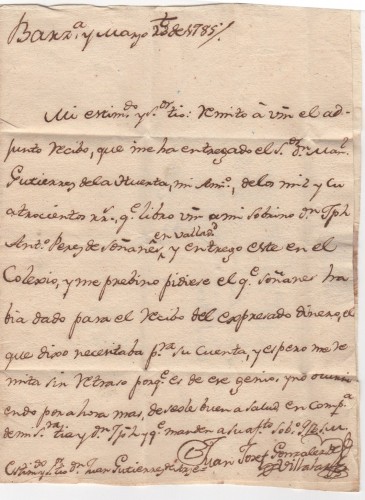 Barz.ª y Marzo 23 de 1785
Mi estim.do y S.or tio: Remito â Vm el ad-
junto Recibo, que me ha entregado el S.or D.n Man.l
Gutierrez de la Huerta, mi Amo, de los mil y cu
atrocientos rr.s, q.e libro Vm a mi Sobrino D.n Tph
Ant.º Perez de Soñanes, en Vallad.d y entrego este en el
Colexio, y me prebino pidiese el q.e Soñanes ha
bia dado para el Recibo del expresado dinero, el
que dixo necesitaba p.ra su Cuenta, y espero me Re
mita sin Retraso porq.e es de ese genio; y no ocurri
endo por ahora mas, deseole buena salud en Comp.a
de mi S.ra tia y D.n Tph y q.e manden a su af.to Sob.o
Juan Josef Gonzalez de
Villa
Estim.do S.or tio D.n Juan Gutierrez de